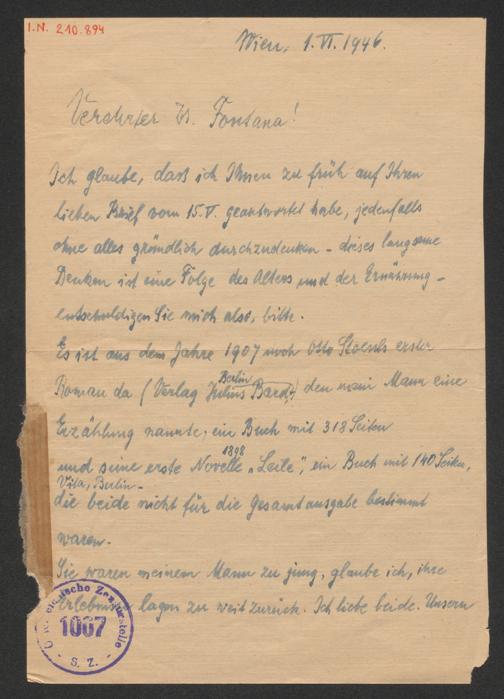 I.N. 210.894
Wien, 1. VI. 1946.
Verehrter H. Fontana!
Ich glaube, dass ich Ihnen zu früh auf Ihren
lieben Brief vom 15. V. geantwortet habe, jedenfalls
ohne alles gründlich durchzudenken – dieses langsame
Denken ist eine Folge des Alters und der Ernährung –
entschuldigen Sie mich also, bitte.
Es ist aus dem Jahre 1907 noch Otto Stoessls erster
Berlin
Roman da (Verlag Julius Bard,) den mein Mann eine
Erzählung nannte, ein Buch mit 318 Seiten
1898
und seine erste Novelle „Leile", ein Buch mit 140 Seiten,
Vita, Berlin –
die beide nicht für die Gesamtausgabe bestimmt
waren.
Sie waren meinem Mann zu jung, glaube ich, ihre
Erlebnisse lagen zu weit zurück. Ich liebe beide. Unsern
Österreichische Zensurstelle
1067
- S. Z. -